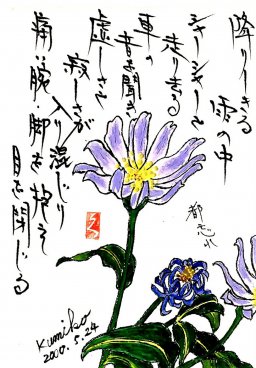 降りしきる
雨の中
シャーシャーと
走り去る
車の
音を聞き
虚しさと
寂しさが
入り混じり
腕・脚を抱え
目を閉じる
都忘れ
Kumiko
2000.5.24